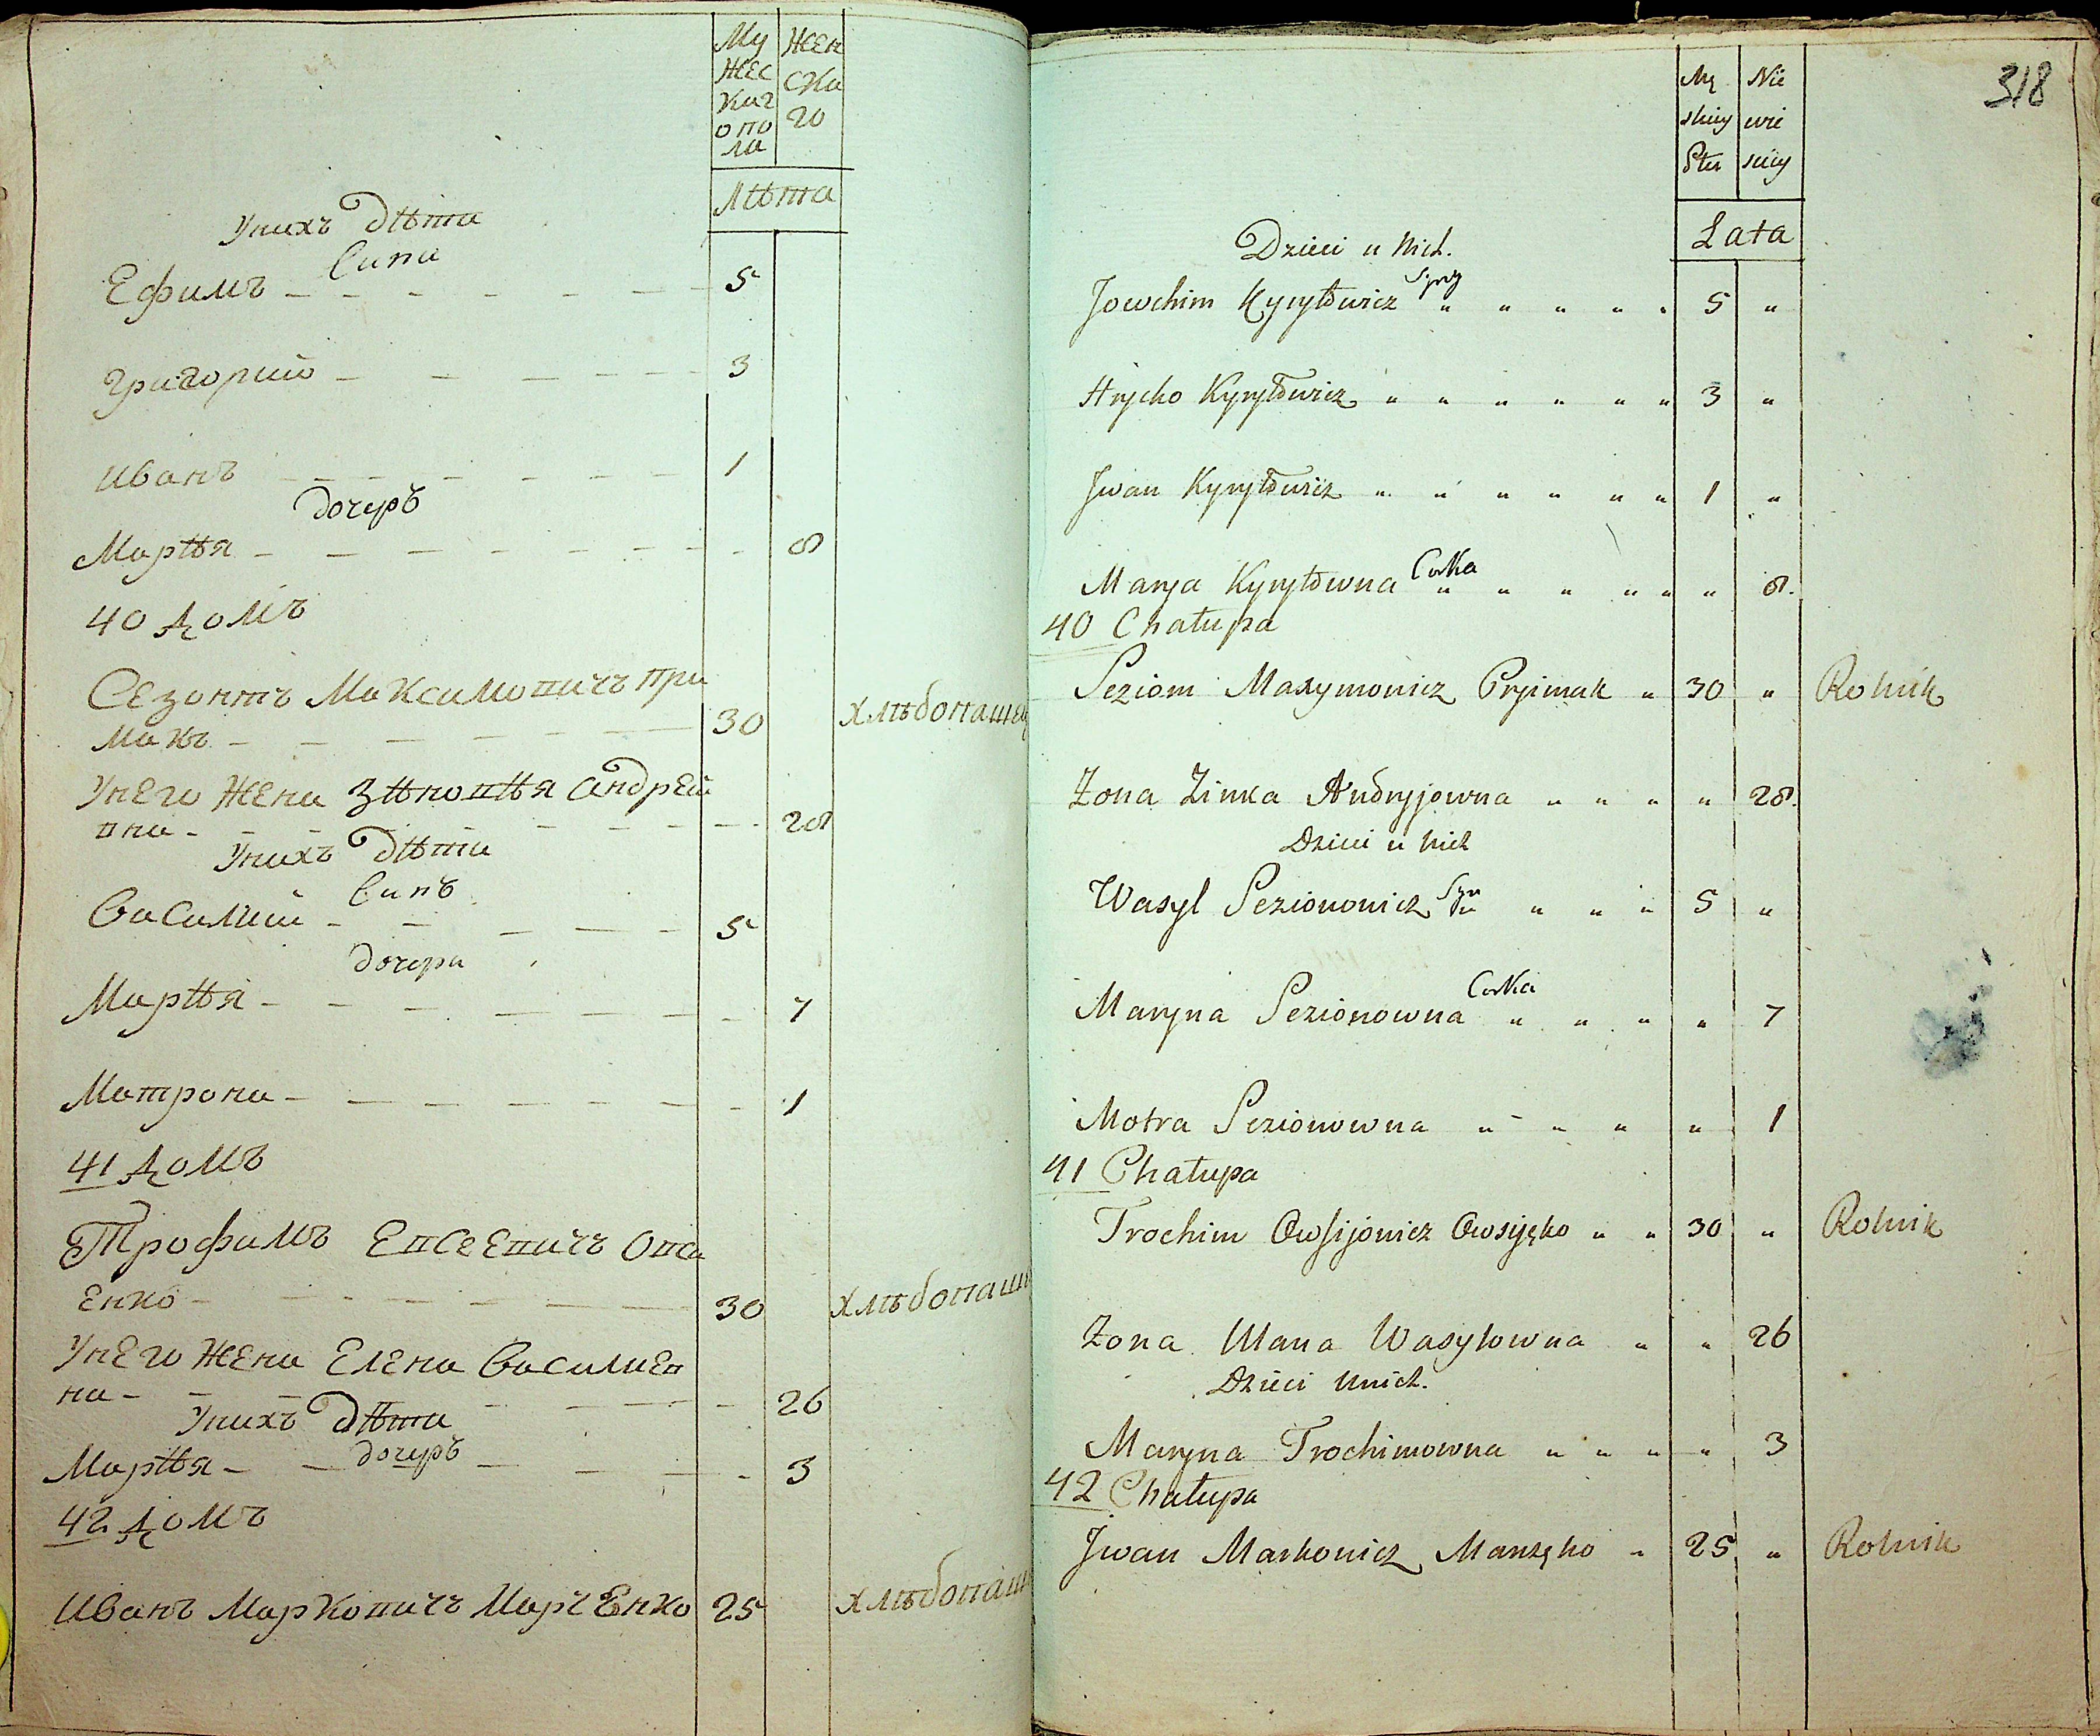 Му
жес
каг
о по
ла
Жен
ска
го
Лѣта
Унихъ дѣти
Сипи
Ефимъ — — — — — — 5
Григорий — — — — — 3
Иванъ — — — — — — 1
дочеръ
Марѣя — — — — — — — 8
40 домъ
Сезонтъ Максимовичъ При
макъ — — — — — — 30 хлѣбопашец
Унего Жена Зѣновѣя Андрей
вна — — — — — — — 28
Унихъ дѣти
Синъ
Василий — — — — — 5
дочери
Марѣя — — — — — — — 7
Матрона — — — — — — — 1
41 домъ
Трофимъ Евсеевичъ Овси
енко — — — — — — 30 хлѣбопаш
Унего Жена Елена Василиев
на — — — — — — 26
Унихъ дѣти
дочеръ
Марѣя — — — — — — 3
42 домъ
Иванъ Марковичъ Марченко 25 хлѣбопаш
318
Mę
skiey
Płci
Nie
wie
sciey
Lata
Dzieci u Nich.
Syny
Jowchim Kyryłowicz " " " " " 5 "
Hrycko Kyryłowicz " " " " " " 3 "
Jwan Kyryłowicz " " " " " " 1 "
Corka
Marya Kyryłowna " " " " " " 8.
40 Chałupa
Seziom Maxymowicz Pryimak " 30 " Rolnik
Żona Zinka Andryjowna " " " " 28.
Dzieci u Nich
Wasyl Sezionowicz Syn " " " " 5 "
Corka
Maryna Sezionowna " " " " 7
Motra Sezionowna " " " " 1
41 Chałupa
Trochim Owsijowicz Owsijęko " " 30 " Rolnik
Żona Ulana Wasylowna " " 26
Dzieci Unich.
Maryna Trochimowna " " " " 3
42 Chałupa
Jwan Markowicz Marczęko " 25 " Rolnik